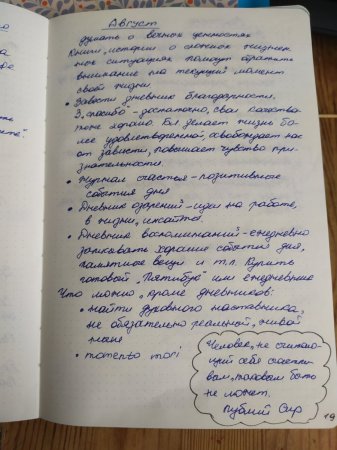 Август
думать о вечных ценностях
Книги, истории о сложных жизнен-
ных ситуациях помогут обратить
внимание на текущий момент
своей жизни
• Завести дневник благодарности.
3 „спасибо" - достаточно, свои
тоже хорошо. Бл. делает жизнь бо-
лее удовлетворенной, освобождает нас
от зависти, повышает чувство при-
знательности.
• Журнал счастья - позитивные
события дня
• Дневник озарений - идеи на работе,
в жизни, инсайты
• Дневник воспоминаний - ежедневно
записывать хорошие события дня,
памятные вещи и т.п. Купить
готовый „Пятибук" или ежедневник
Что можно, кроме дневников:
• найти духовного наставника,
не обязательно реальный, живой
• momento mori
Человек, не считаю-
щий себя счастли-
вым, таковым быть
не может.
Публий Сир
19